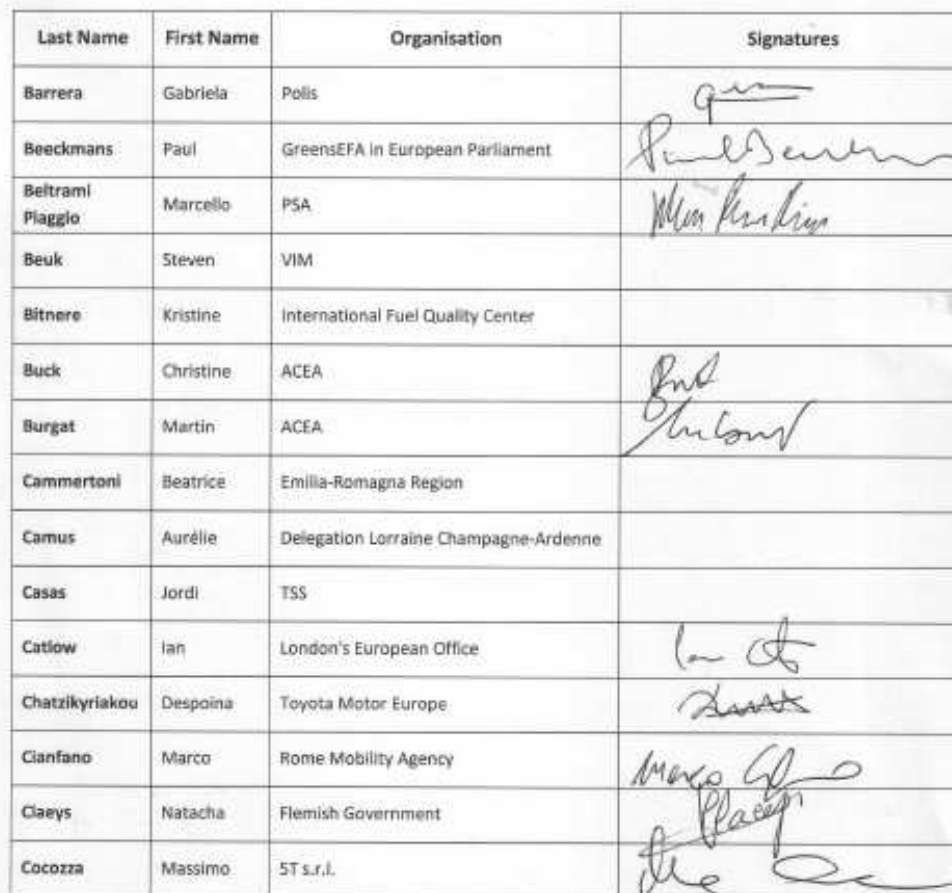 Last Name First Name Organisation Signatures
Barrera Gabriela Polis
Beeckmans Paul GreensEFA in European Parliament
Beltrami
Piaggio Marcello PSA
Beuk Steven VIM
Bitnere Kristine International Fuel Quality Center
Buck Christine ACEA
Burgat Martin ACEA
Cammertoni Beatrice Emilia-Romagna Region
Camus Aurélie Delegation Lorraine Champagne-Ardenne
Casas Jordi TSS
Catlow Ian London's European Office
Chatzikyriakou Despoina Toyota Motor Europe
Cianfano Marco Rome Mobility Agency Marco
Claeys Natacha Flemish Government
Cocozza Massimo 5T s.r.l.